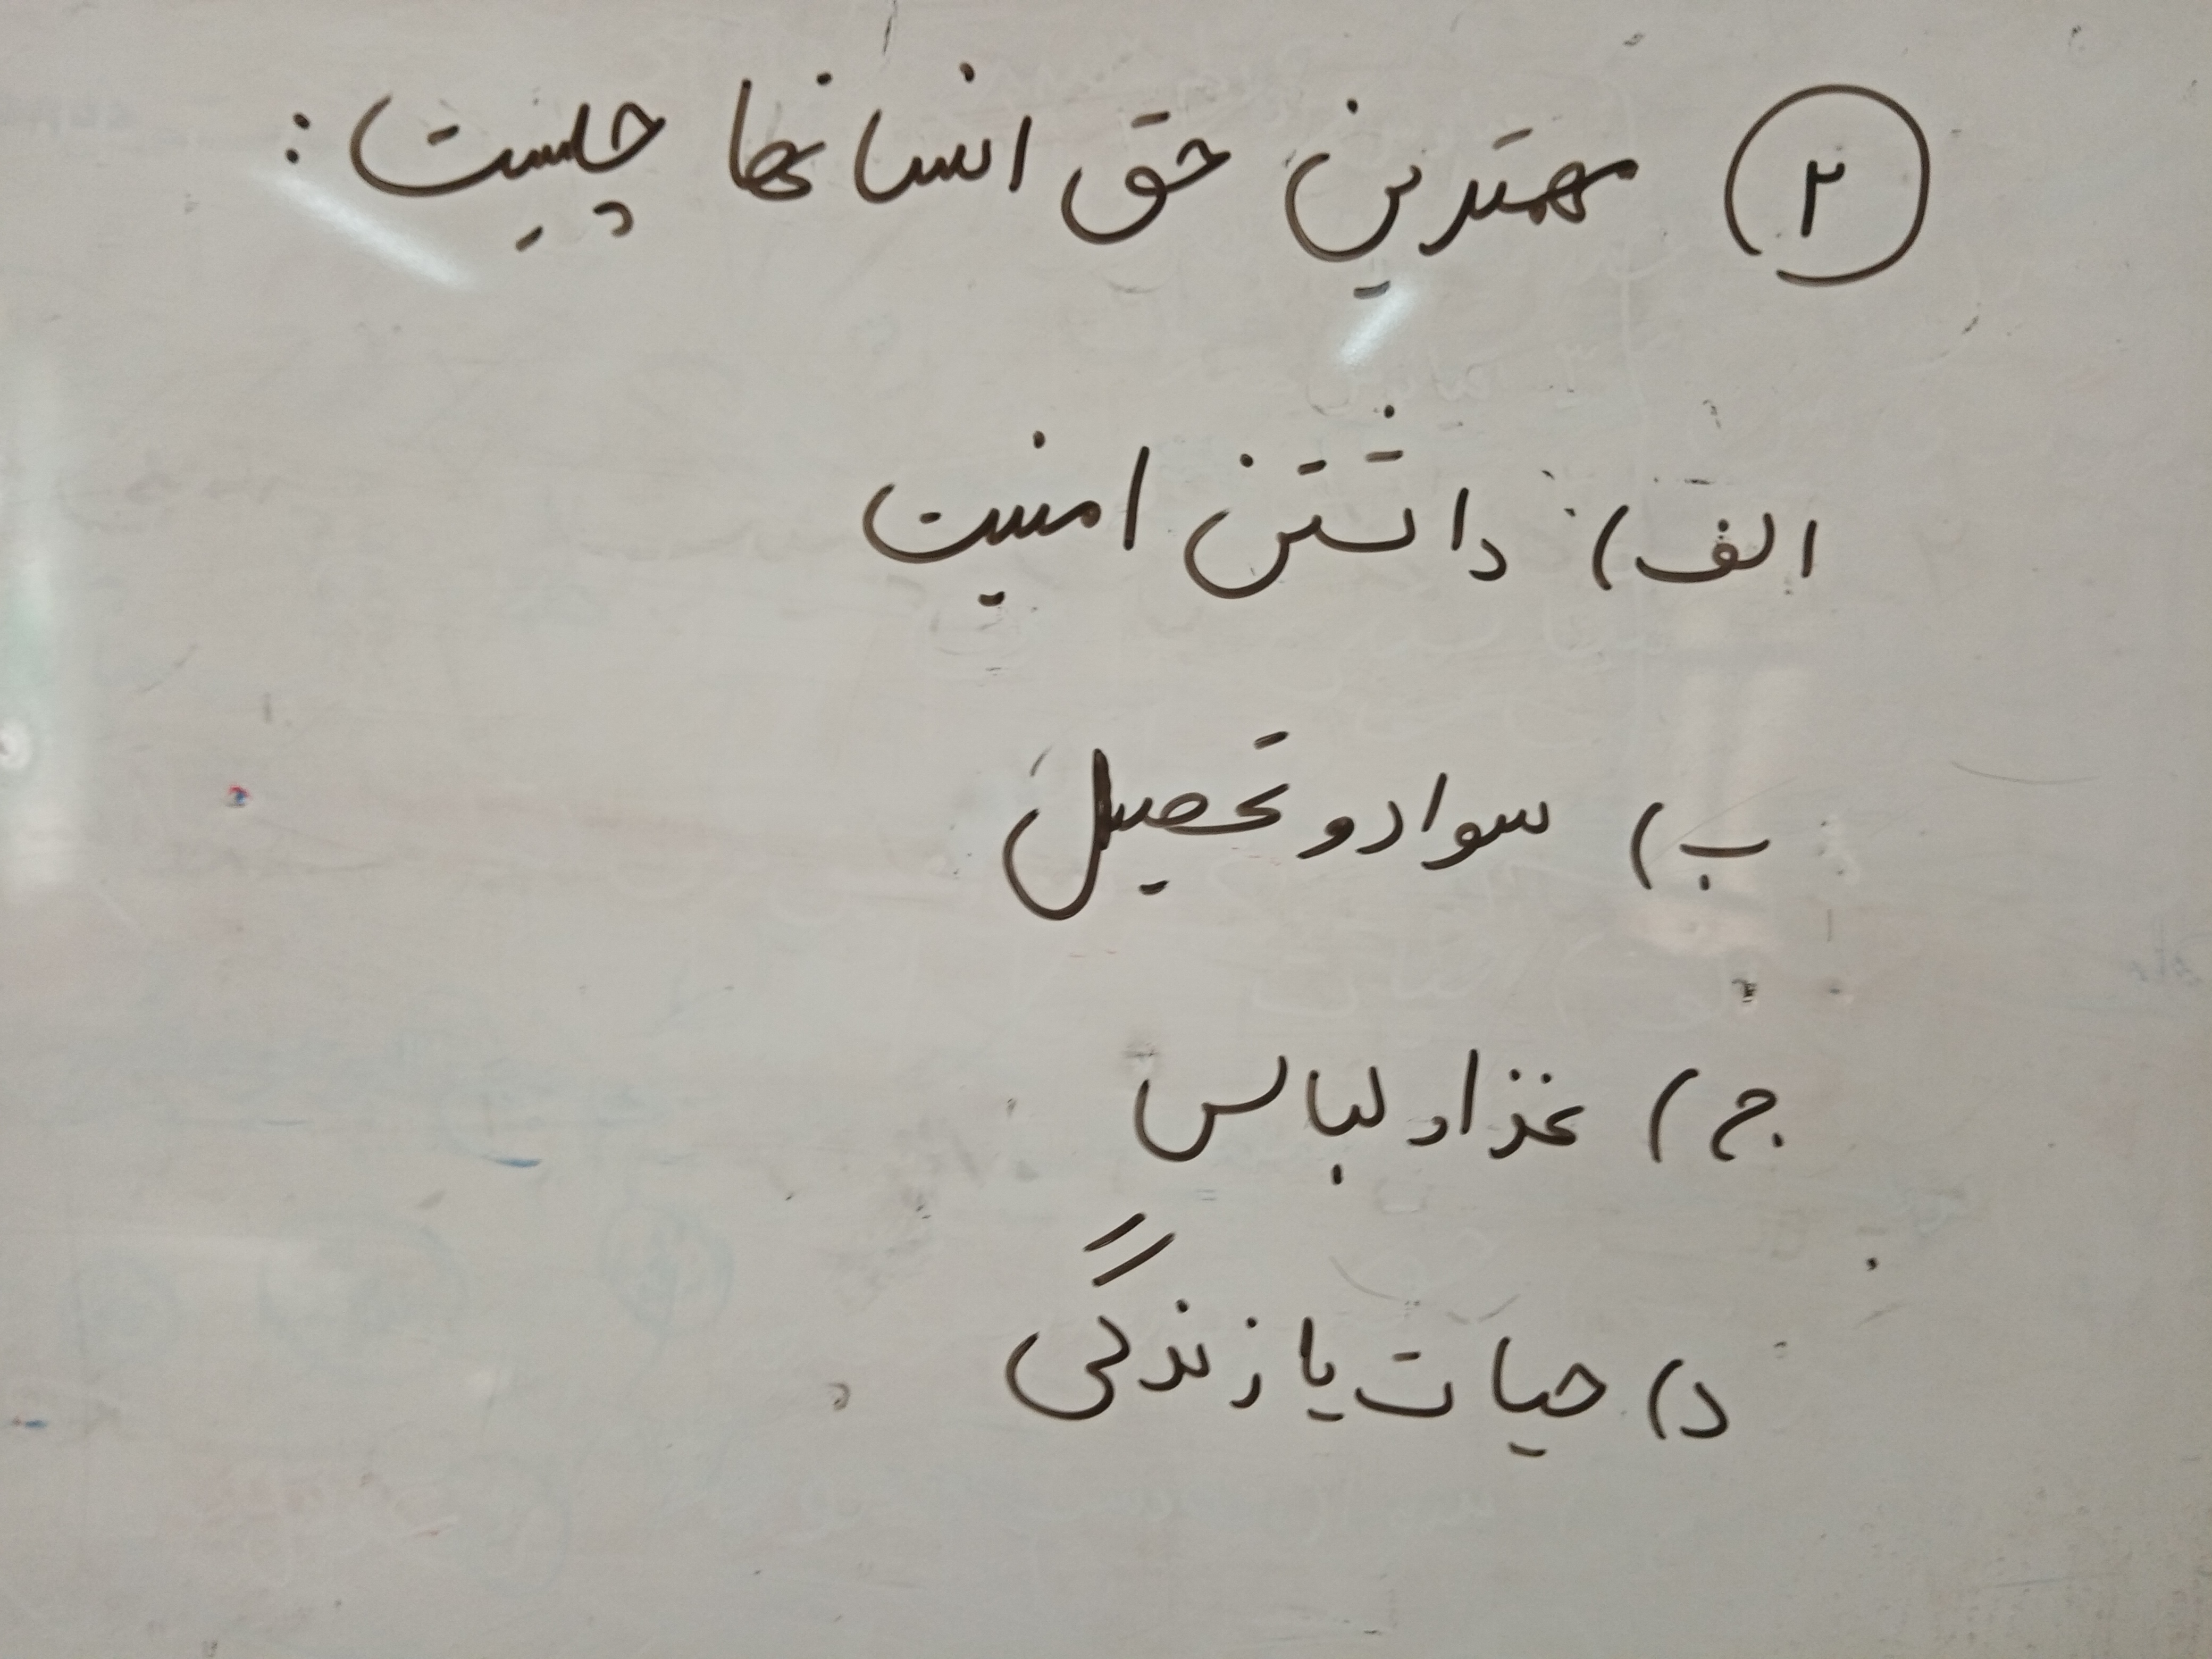 ۲) مهمترین حق انسانها چیست :
الف) داشتن امنیت
ب) سواد و تحصیل
ج) غذا و لباس
د) حیات یا زندگی